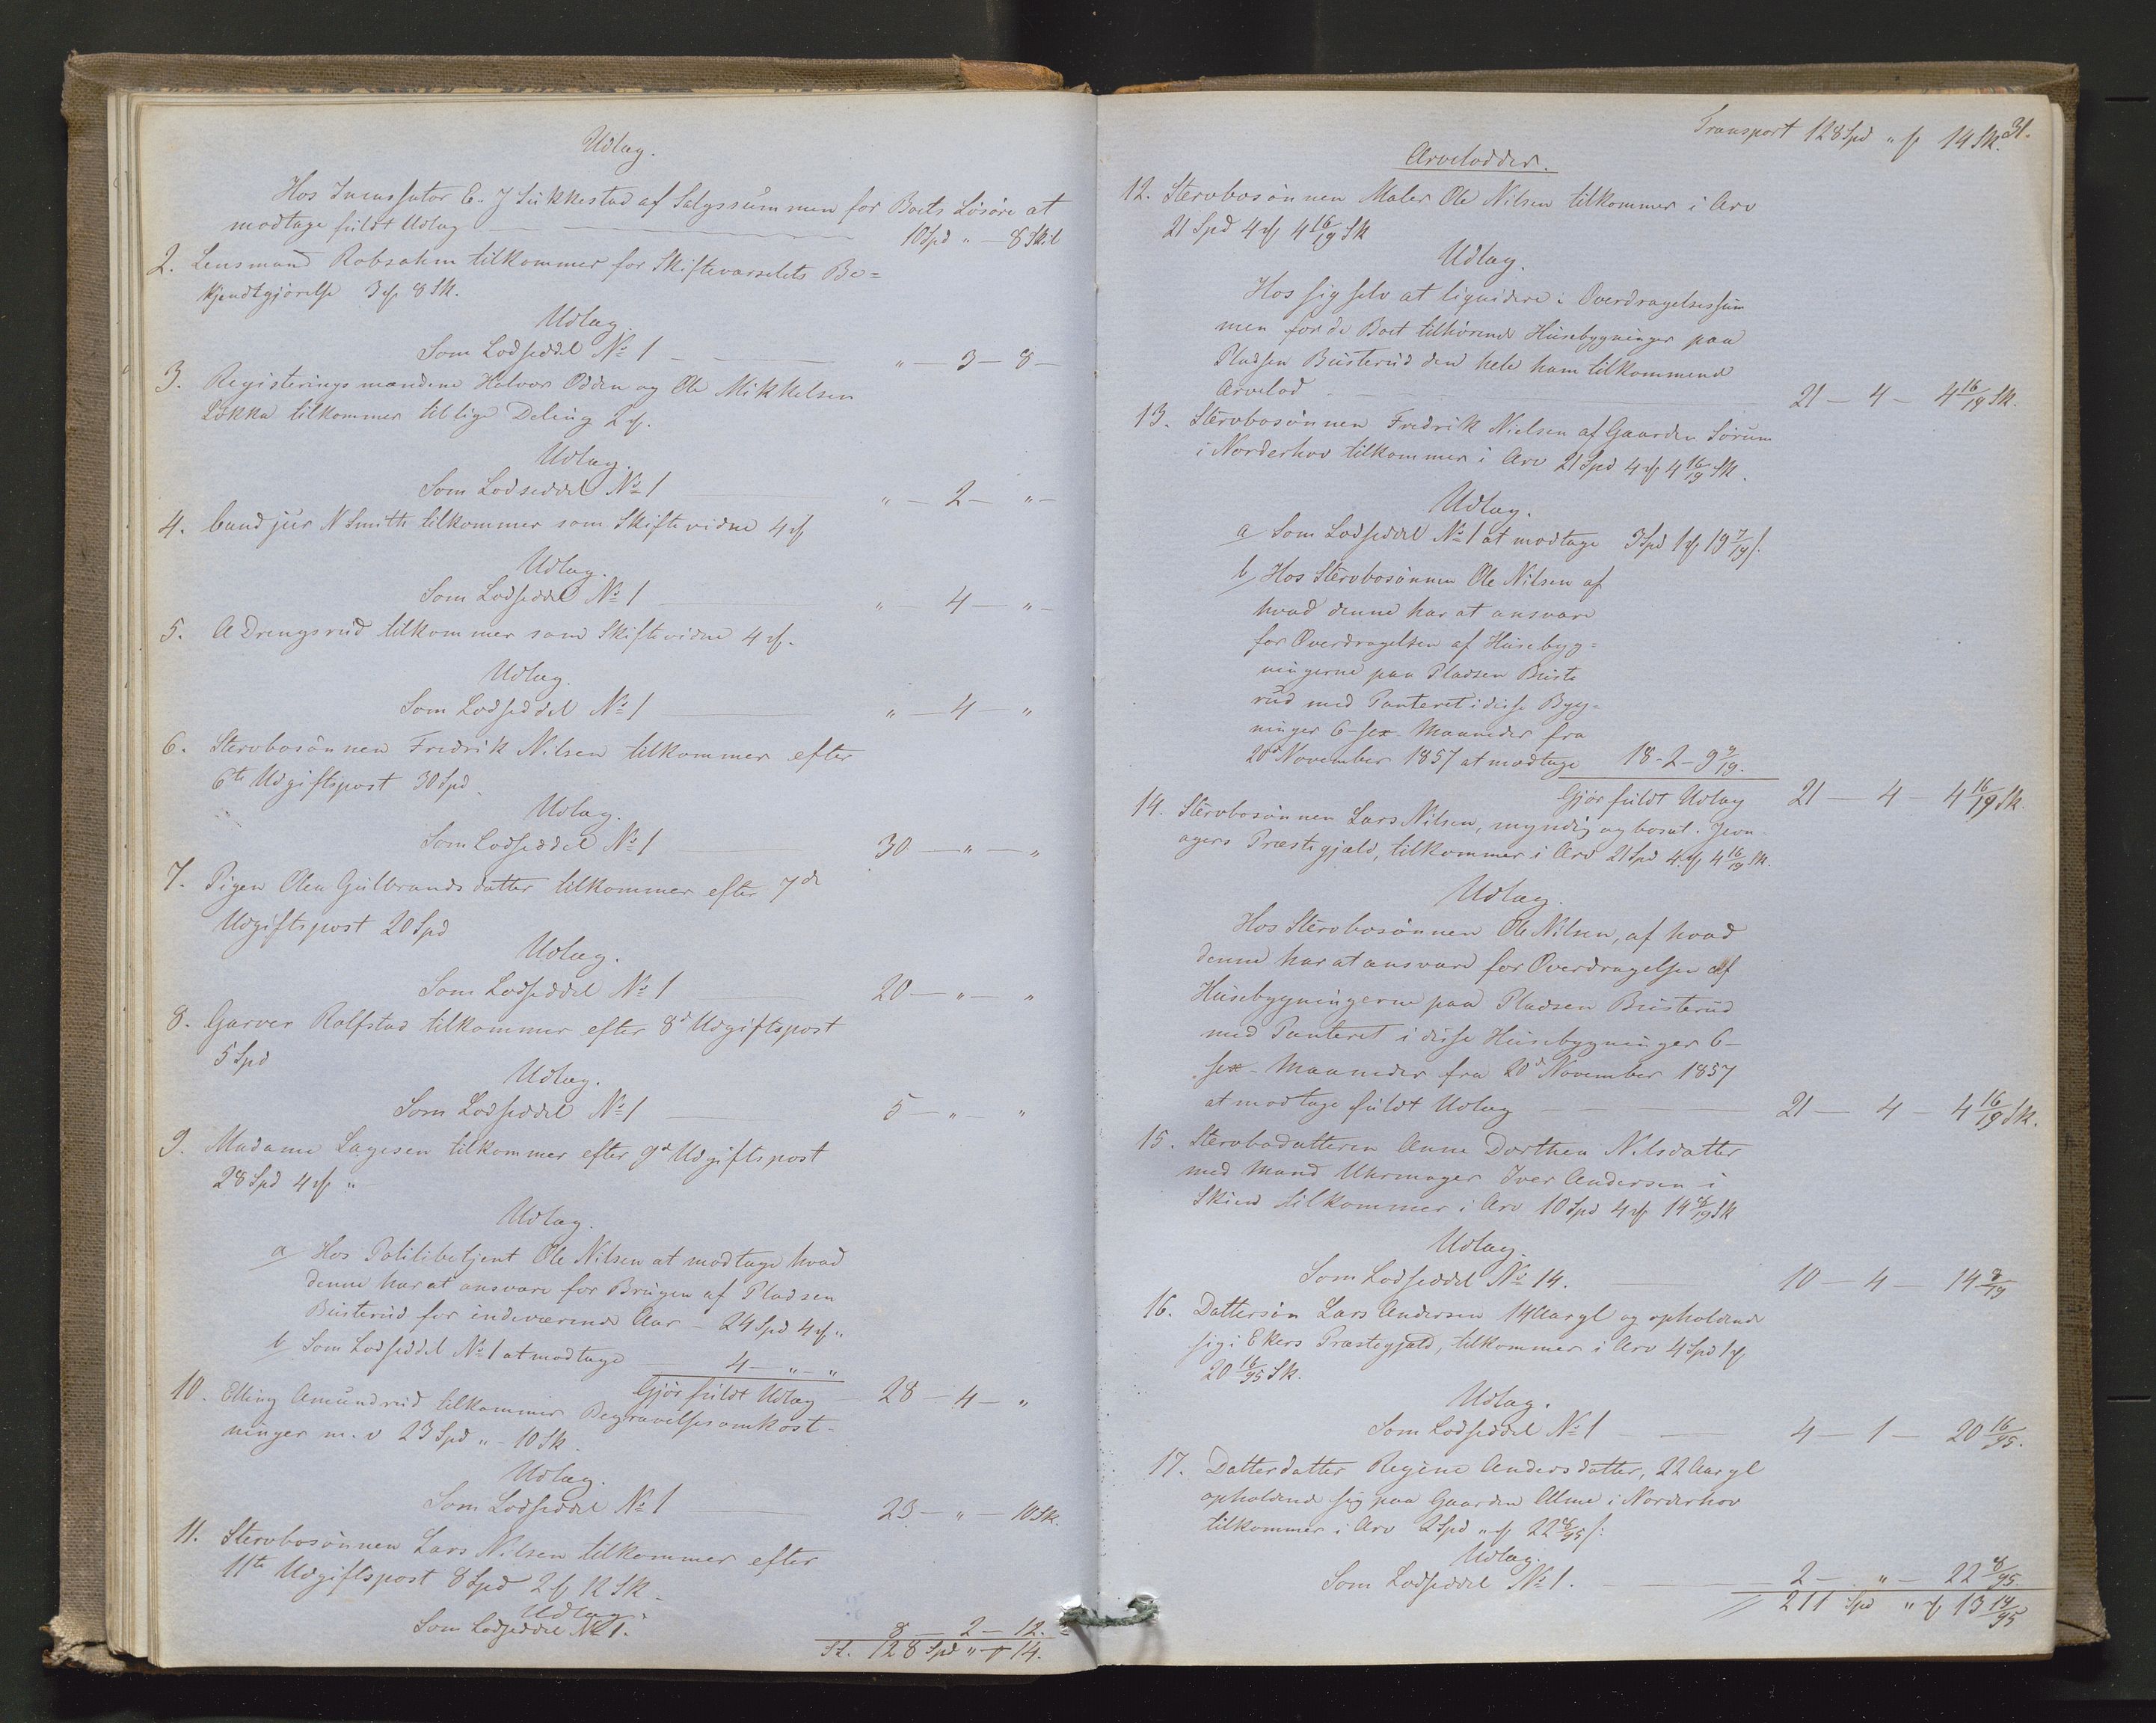 Udlæg.
Hos Incassator E. J Sukkestad af Salgssummen for Boets Løsøre at
modtage fuldt Udlæg — 10 Spd " — 8 Skil
2. Lensmand Robsahm tilkommer for Skiftevarselets Be=
kjendtgjørelse 3 ϸ 8 Sk.
Udlæg.
Som Lodseddel No 1 — " — 3 — 8 —
3. Registeringsmændene Halvor Odden og Ole Mikkelsen
Løkka tilkommer tillige Deling 2 ϸ.
Udlæg.
Som Lodseddel No 1 " — 2 — " —
4. Cand jur N Smith tilkommer som Skiftevidne 4 ϸ
Udlæg.
Som Lodseddel No 1 — " — 4 — " —
5. A Drengsrud tilkommer som Skiftevidne 4 ϸ.
Udlæg.
Som Lodseddel No 1 — " — 4 — "
6. Stervbosønnen Fredrik Nilsen tilkommer efter
6te Udgiftspost 30 Spd.
Udlæg.
Som Lodseddel No 1 — 30 — " — "
7. Pigen Olea Gulbrandsdatter tilkommer efter 7de
Udgiftspost 20 Spd
Udlæg.
Som Lodseddel No 1 — 20 — " — "
8. Garver Rolfstad tilkommer efter 8d Udgiftspost
5 Spd
Udlæg.
Som Lodseddel No 1 — 5 — " "
9. Madame Lagesen tilkommer efter 9d Udgiftspost
28 Spd 4 ϸ "
Udlæg.
a/ Hos Politibetjent Ole Nilsen at modtage hvad
denne har at ansvare for Brugen af Pladsen
Busterud for indeværende Aar — 24 Spd 4 ϸ "
b/ Som Lodseddel No 1 at modtage — 4 — " — "
Gjør fuldt Udlæg — 28 — 4 — "
10. Elling Amundrud tilkommer Begravelsesomkost-
ninger m. v 23 Spd " — 10 Sk.
Udlæg.
Som Lodseddel No 1 — 23 — " — 10 Sk.
11. Stervbosønnen Lars Nilsen tilkommer efter
11te Udgiftspost 8 Spd 2 ϸ 12 Sk —
Udlæg.
Som Lodseddel No 1. 8 — 2 — 12.
St. 128 Spd " ϸ 14.
Transport 128 Spd " ϸ 14 Sk. 31.
Arvelodder.
12. Stervbosønnen Maler Ole Nilsen tilkommer i Arv
21 Spd 4 ϸ 4 16/19 Sk
Udlæg.
Hos sig selv at liquidere i Overdragelsessum
men for de Boet tilhørende Husebygninger paa
Pladsen Busterud den hele ham tilkommende
Arvelod — 21 — 4 — 4 16/19 Sk.
13. Stervbosønnen Fredrik Nielsen af Gaarden Sørum
i Norderhov tilkommer i Arv 21 Spd 4 ϸ 4 16/19 Sk.
Udlæg.
a/ Som Lodseddel No 1 at modtage 3 Spd 1 ϸ 19 7/19 /:
b/ Hos Stervbosønnen Ole Nilsen af
hvad denne har at ansvare
for Overdragelsen af Husebyg=
ningerne paa Pladsen Buste
rud med Panteret i disse Byg=
ninger 6 - sex Maaneder fra
20d November 1857 at modtage 18 - 2 - 9 9/19.
Gjør fuldt Udlæg 21 — 4 — 4 16/19 Sk.
14. Stervbosønnen Lars Nilsen, myndig og bosat i Jevn-
agers Præstegjæld, tilkommer i Arv 21 Spd 4 ϸ 4 16/19 Sk.
Udlæg.
Hos Stervbosønnen Ole Nilsen, af hvad
denne har at ansvare for Overdragelse af
Husebygningerne paa Pladsen Busterud
med Panteret i disse Husebygninger 6 -
sex - Maaneder fra 20d November 1857
at modtage fuldt Udlæg — 21 — 4 — 4 16/19 Sk.
15. Stervbodatteren Anne Dorthea Nilsdatter
med Mand Uhrmager Iver Andersen i
Skien tilkommer i Arv 10 Spd 4 ϸ 14 8/19 Sk
Udlæg.
Som Lodseddel No 14. — 10 — 4 — 14 8/19
16. Dattersøn Lars Andersen 14 Aar gl og opholdende
sig i Ekers Præstegjæld, tilkommer i Arv 4 Spd 1 ϸ
20 16/95 Sk.
Udlæg.
Som Lodseddel No 1 — 4 — 1 — 20 16/95.
17. Datterdatter Regine Andersdatter, 22 Aar gl
opholdende sig paa Gaarden Alme i Norderhov
tilkommer i Arv 2 Spd " ϸ 22 8/95 /:
Udlæg.
Som Lodseddel No 1. — 2 — " — 22 8/95.
211 Spd " ϸ 13 14/95